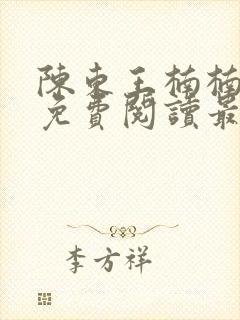 陳東王楠楠
免費閱讀最
李方祥